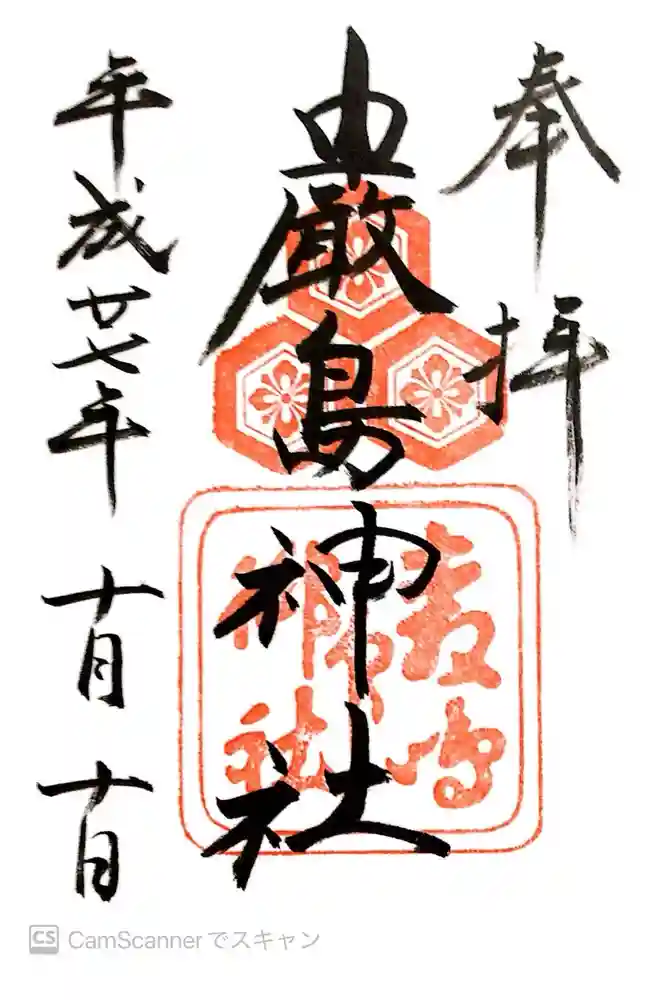 奉拝
嚴島神社
平成廿七年 十月 十日
CS CamScanner でスキャン